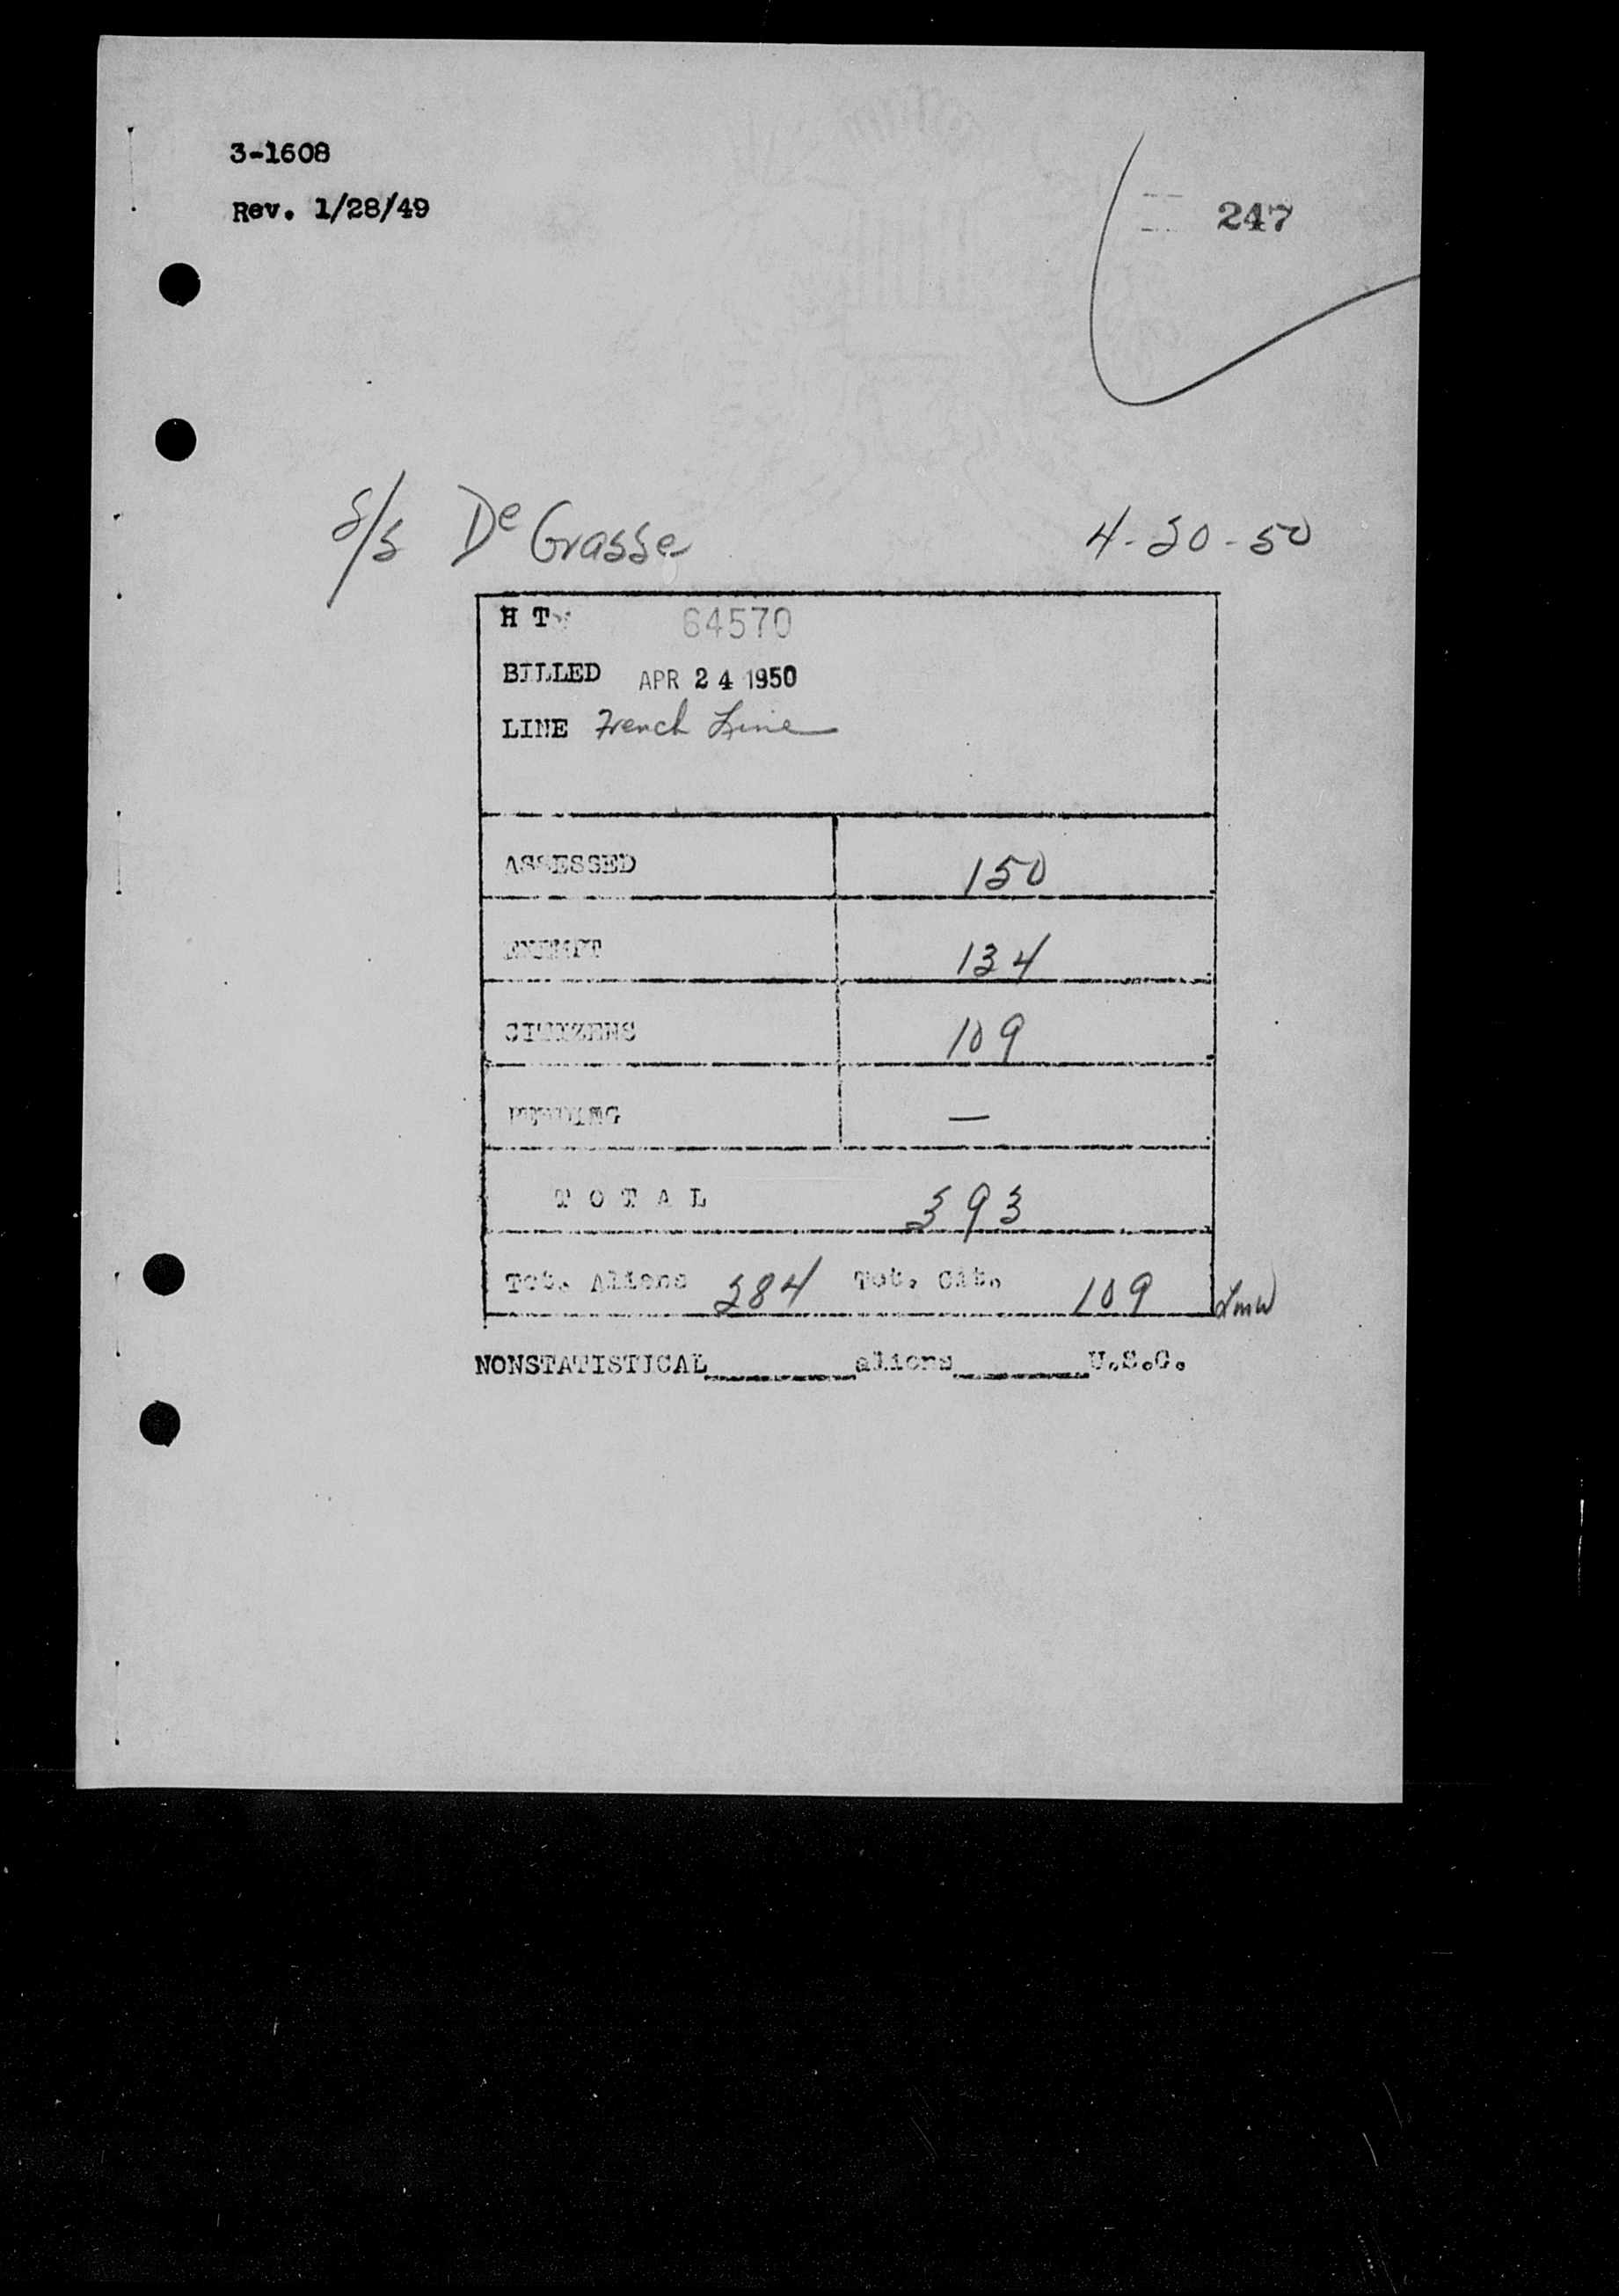 3-1608
Rev. 1/28/49
247
S/S De Grasse 4-20-50
H T 64570
BILLED APR 24 1950
LINE French Line
ASSESSED 150
EXEMPT 134
CITIZENS 109
PENDING —
T O T A L 393
Tot. Aliens 284 Tot. Cit. 109
NONSTATISTICAL________aliens________U.S.C.